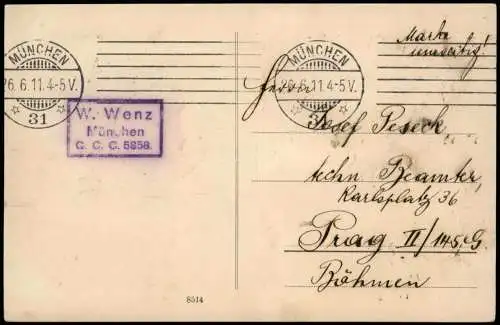 MÜNCHEN
26.6.11.4-5V.
31
W. Wenz
München
C. C. C. 5858.
MÜNCHEN
26.6.11.4-5V.
31
Marke
umseitig!
Herrn
Josef Peseck
techn Beamter,
Karlsplatz 36
Prag II/145.G
Böhmen
8514